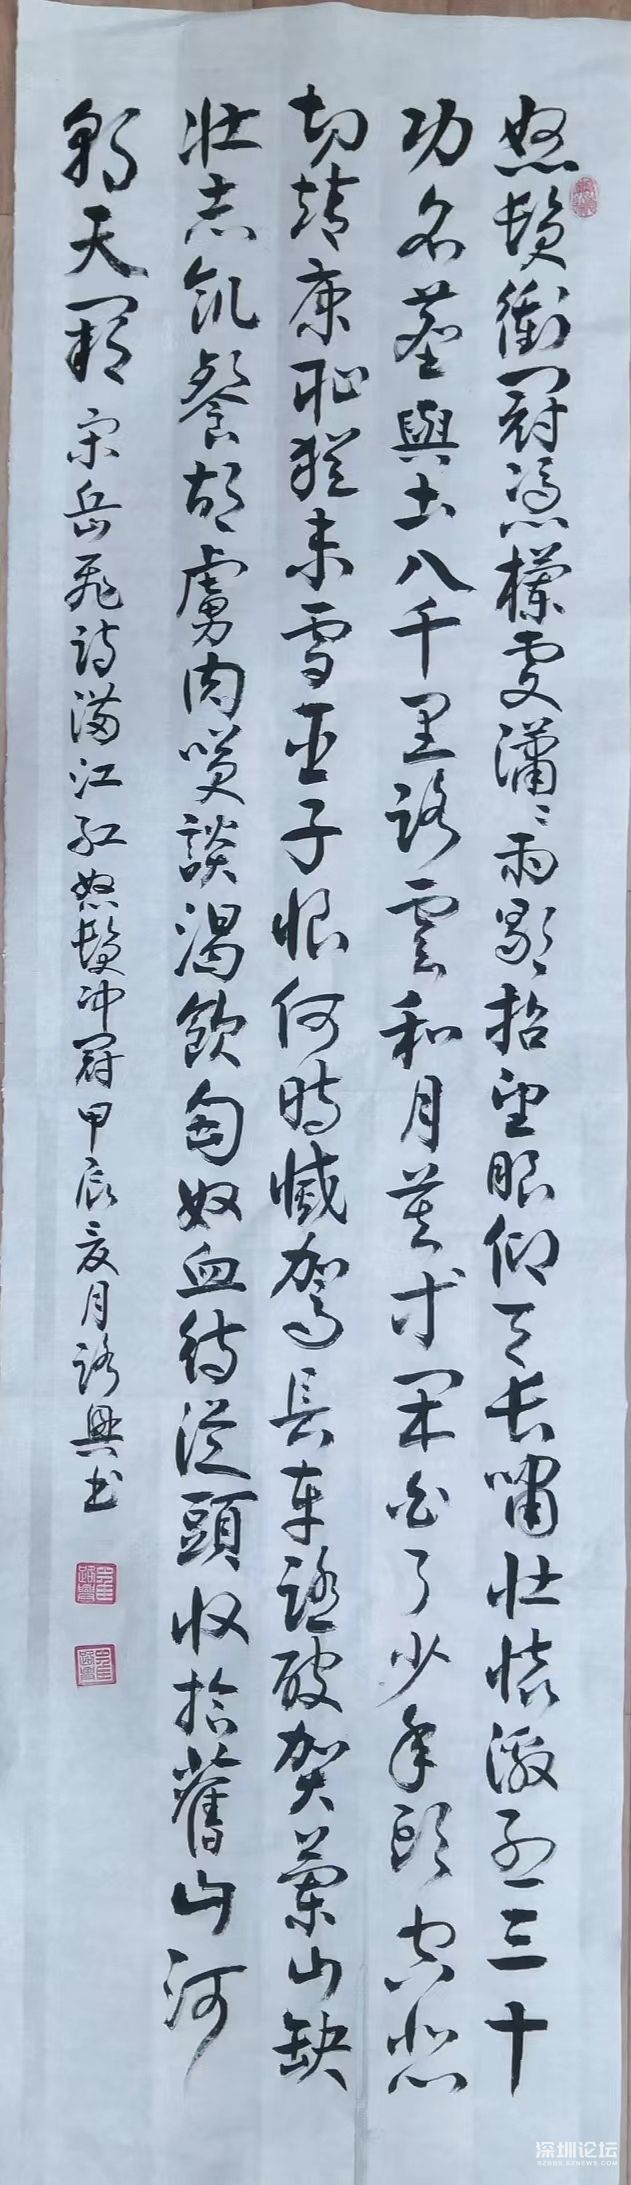 怒髮衝冠憑欄處瀟瀟雨歇抬望眼仰天長嘯壯懷激烈三十
功名塵與土八千里路雲和月莫等閑白了少年頭空悲
切靖康恥猶未雪臣子恨何時憾駕長車踏破賀蘭山缺
壯志飢餐胡虜肉笑談渴飲匈奴血待從頭收拾舊山河
朝天闕
宋岳飛詩滿江紅怒髮冲冠甲辰夏月路興书
深圳论坛
SZBBS.SZNEWS.COM